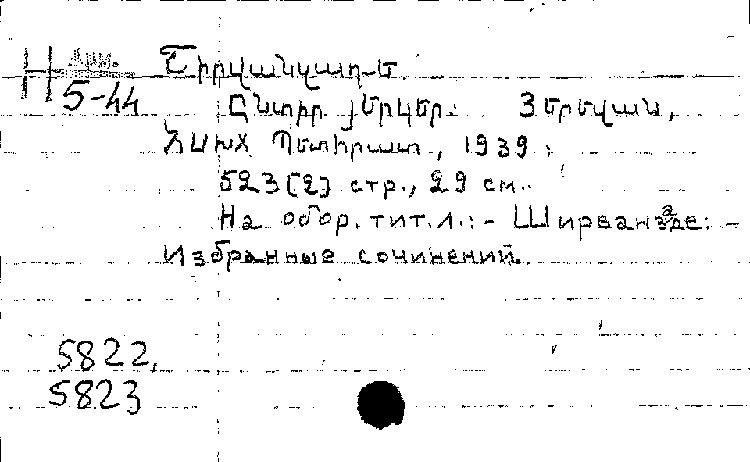 Н Арм.
5-44
Շիրվանզադե
Ընտիր երկեր. Երեվան,
ՀՍԽՀ Պետհրատ, 1939.
523 [2] стр., 29 см.
На обор. тит. л.: - Ширванзаде: -
Избранные сочинений.
5822,
5823